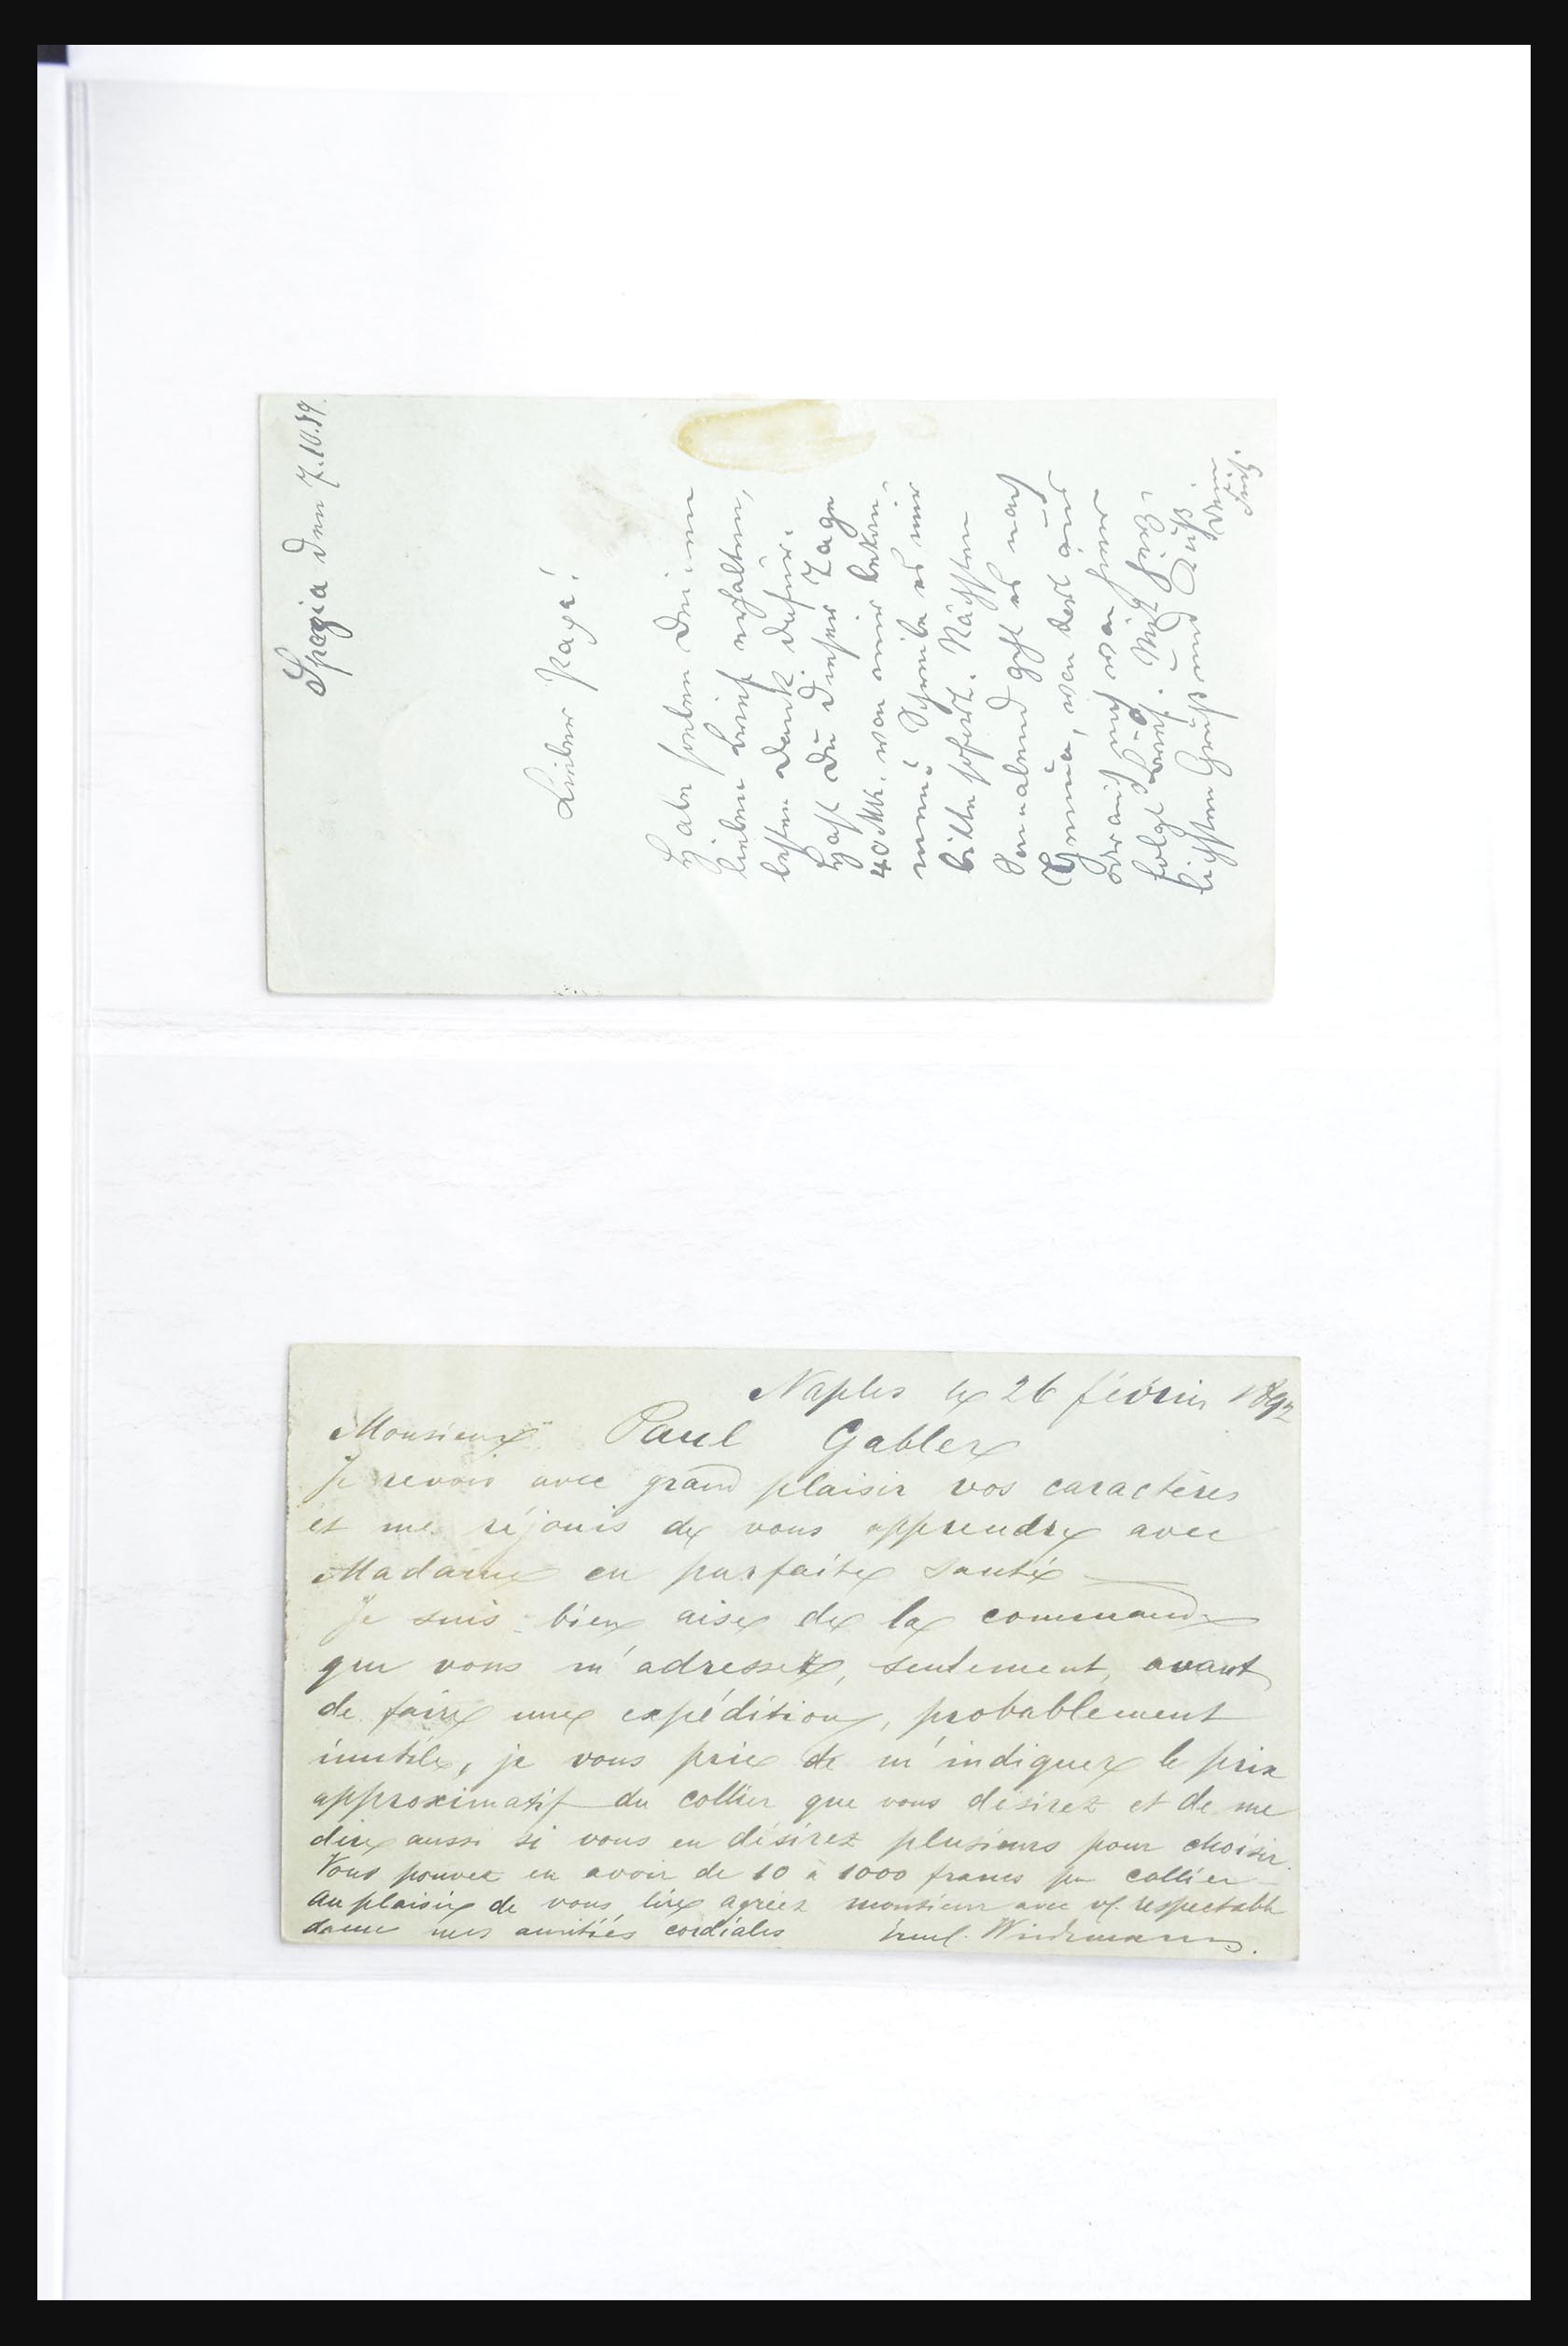 Spezia den 7.10.89.
Lieber Papa!
Habe soeben Deinen
lieben Brief erhalten,
besten Dank dafür.
Hast Du dieser Tage
40 Mk. von mir bekom-
men? Schreibe es mir
bitte sofort. Nächsten
Sonnabend geht es nach
Genua, von dort aus
folgt Brief. Mit herz-
lichsten Gruß und Kuß
Dein
Naples le 26 février 1892
Monsieur Paul Gabler
Je revois avec grand plaisir vos caractères
et me réjouis de vous apprendre avec
Madame en parfaite santé —
Je suis bien aise de la commande
que vous m'adressez, seulement, avant
de faire une expédition, probablement
inutile, je vous prie de m'indiquer le prix
approximatif du collier que vous désirez et de me
dire aussi si vous en désirez plusieurs pour choisir.
Vous pouvez en avoir de 10 à 1000 francs par collier —
Au plaisir de vous lire agréez monsieur avec vf. respectable
dame mes amitiés cordiales